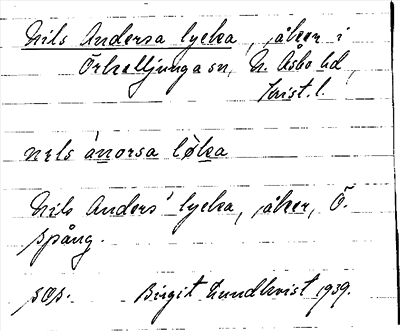 Nils Andersa lycka, åker i
Örkelljunga sn, N. Åsbo hd,
Krist. l.
nɩls ánorsa løka
Nils Anders' lycka, åker, Ö.
Spång.
sɑs. Birgit Lundkvist 1939.